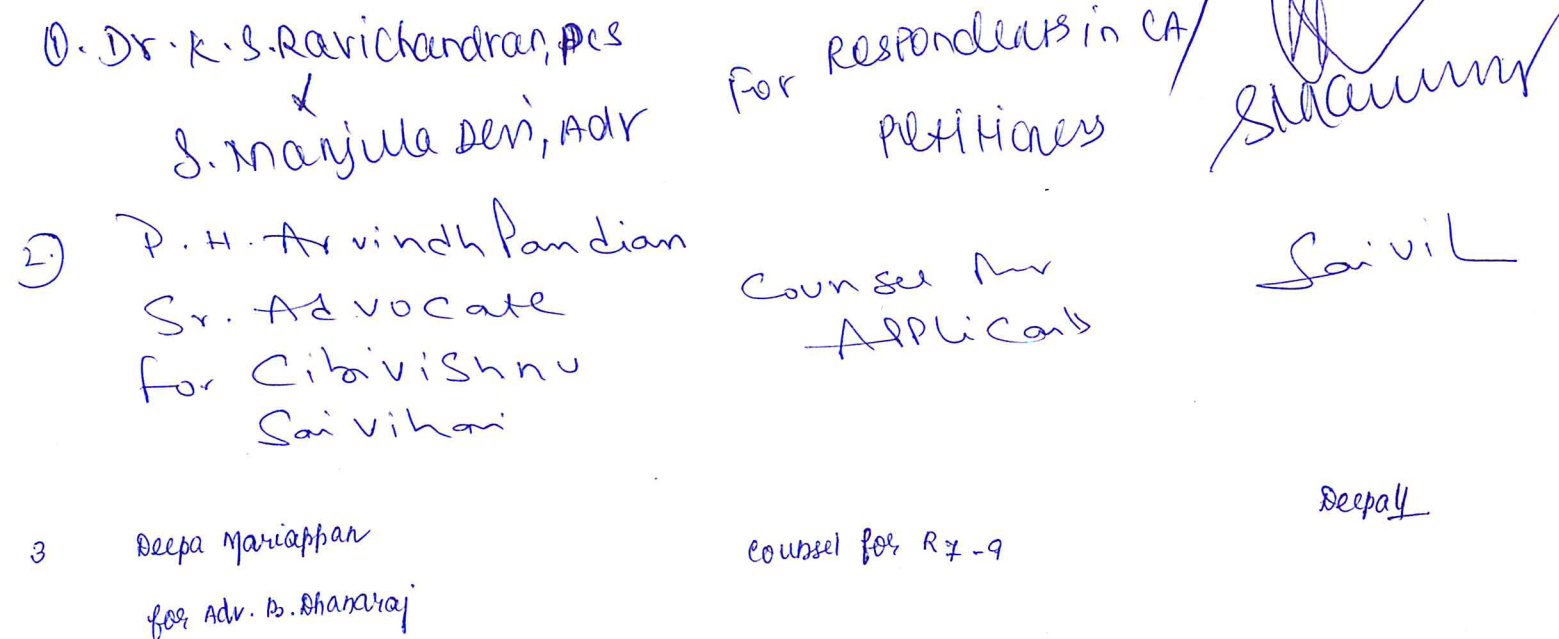 ①. Dr. K. S. Ravichandran, PCS
&
S. Manjula Devi, Adv
For Respondents in CA/
Petitioners
2.) P. H. Arvindh Pandian
Sr. Advocate
for Cibi Vishnu
Sai Vihari
Counsel for
Applicants
3 Deepa Mariappan
for Adv. B. Dhanaraj
Counsel for R7-9
Deepa